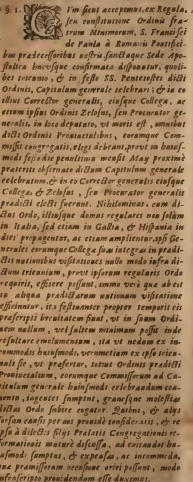 § 1. Vm sicut accepimus, ex Regula,
seu constitutione Ordinis fra-
trum Minimorum, S. Francisci
de Paula à Romanis Pontifici-
bus praedecessoribus nostris sanctaque Sede Apo-
stolica hucusque confirmata disponatur, quoli-
bet triennio, & in festo SS. Pentecostes dicti
Ordinis, Capitulum generale celebrari: & in eo
illius Corrector generalis, eiusque Collega, ac
etiam ipsius Ordinis Zelosus, seu Procurator ge-
neralis, in loco deputato, vt moris est, omnibus
dicti Ordinis Prouincialibus, eorumque Com-
missis congregatis, eligi debeant, prout in huius-
modi festo die penultima mensis May proximè
Praeteriti obseruare dictum Capitulum generale
celebratum, & in eo Corrector generalis eiusque
Collega, & Zelosus, seu Procurator generalis
praedicti electi fuerunt. Nihilominus, cum di-
ctus Ordo, illiusque domus regulares non solùm
in Italia, sed etiam in Gallia, & Hispania in
dies propagentur, ac etiam amplientur, ipsi Ge-
nerales eorumque Collega suae integra in praedi-
ctis nationibus visitationes nullo modo infra di-
ctum triennium, prout ipsorum regularis Ordo
requirit, efficere possunt, immo verò quae ab eis
in aliqua praedictarum nationum visitatione
efficiuntur, ita festinanter propter temporis sic
praescripti breuitatem fiunt, vt in suum Ordi-
nem nullum, vel saltem minimum possit inde
resultare emolumentum, ita vt nedum ex in-
commodis huiusmodi, verumetiam ex ipso trien-
nale sic, vt praefertur, totius Ordinis praedicti
Prouincialium, eorumque Commissorum ad Ca-
pitulum generale huiusmodi celebrandum cau-
cento, ingentes sumptus, grauesque molestias
dictus Ordo subire cogatur. Quibus, & alijs
forsan causis per nos prouidè consideratis, & re
ipsa à dilectis filijs Praelatis Congregationis re-
formationis maturè discussa, ad euitandos hu-
iusmodi sumptus, & expensas, ac incommoda,
quae praemissorum occasione oriri possunt, modo
infrascripto prouidendum esse duximus.